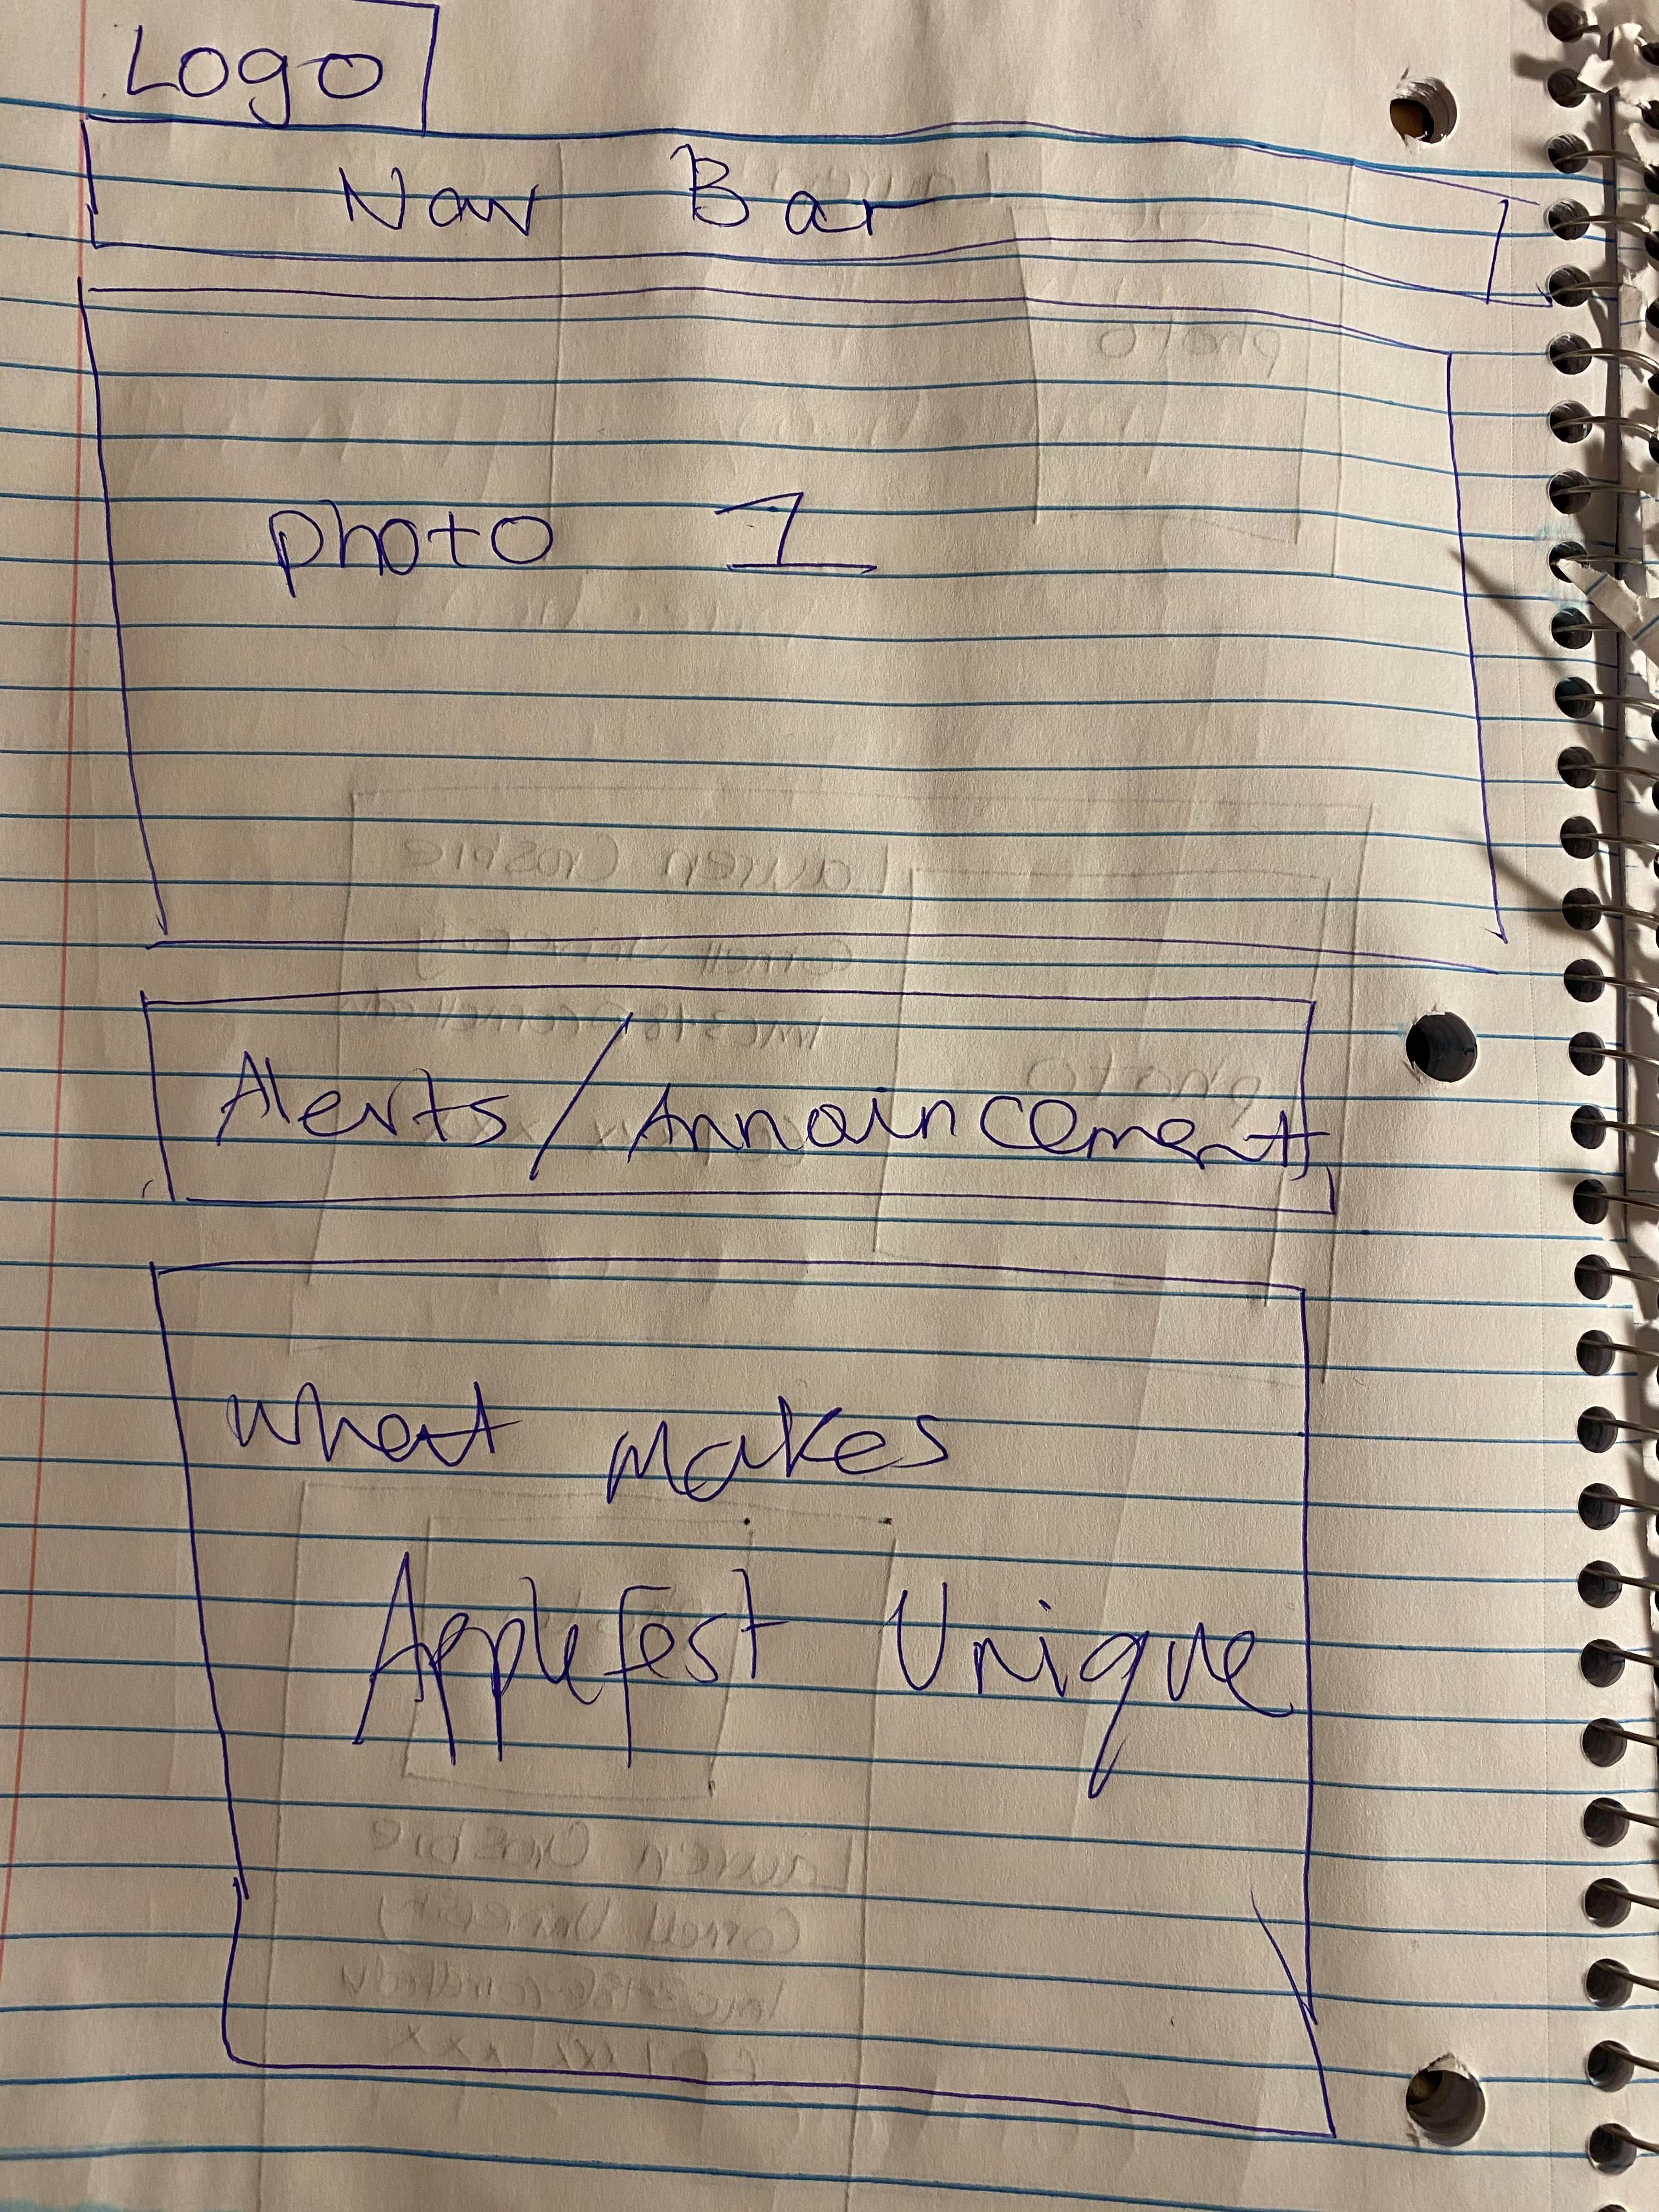 Logo
Nav Bar
photo 1
Alerts/Announcements
What Makes
Applefest Unique